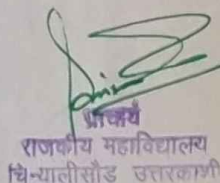 प्राचार्य
राजकीय महाविद्यालय
चिन्यालीसौड़ उत्तरकाशी